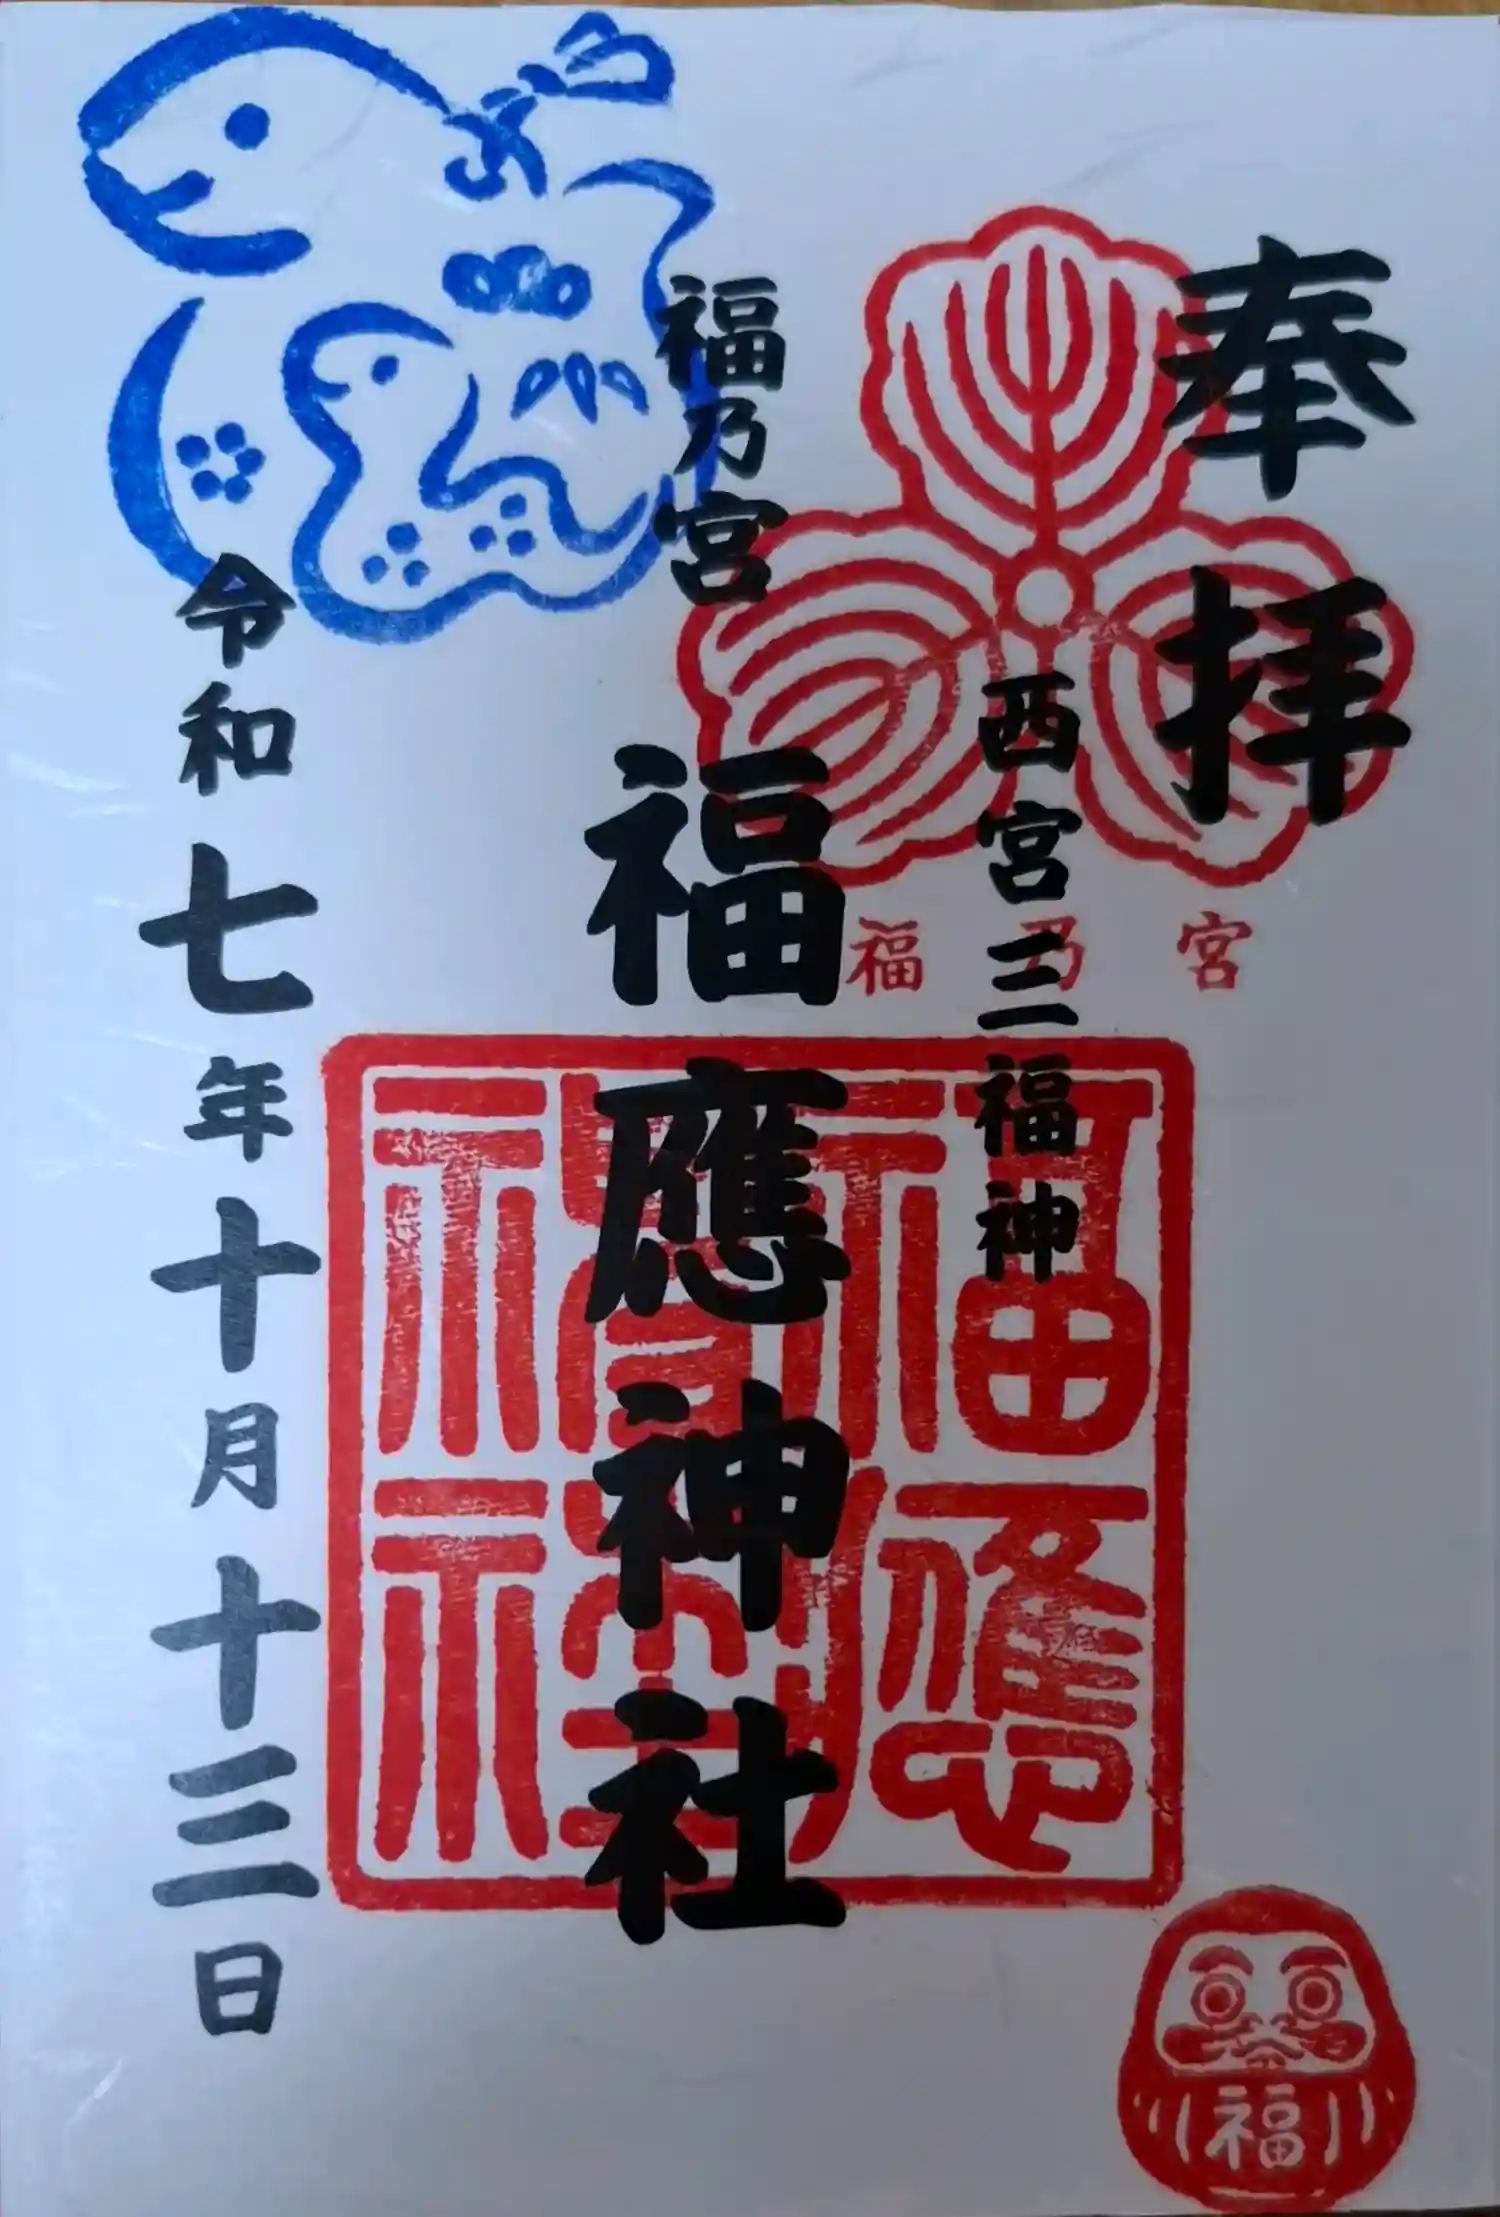 奉拝
西宮三福神
福乃宮
福乃宮
福應神社
令和七年十月十三日
福